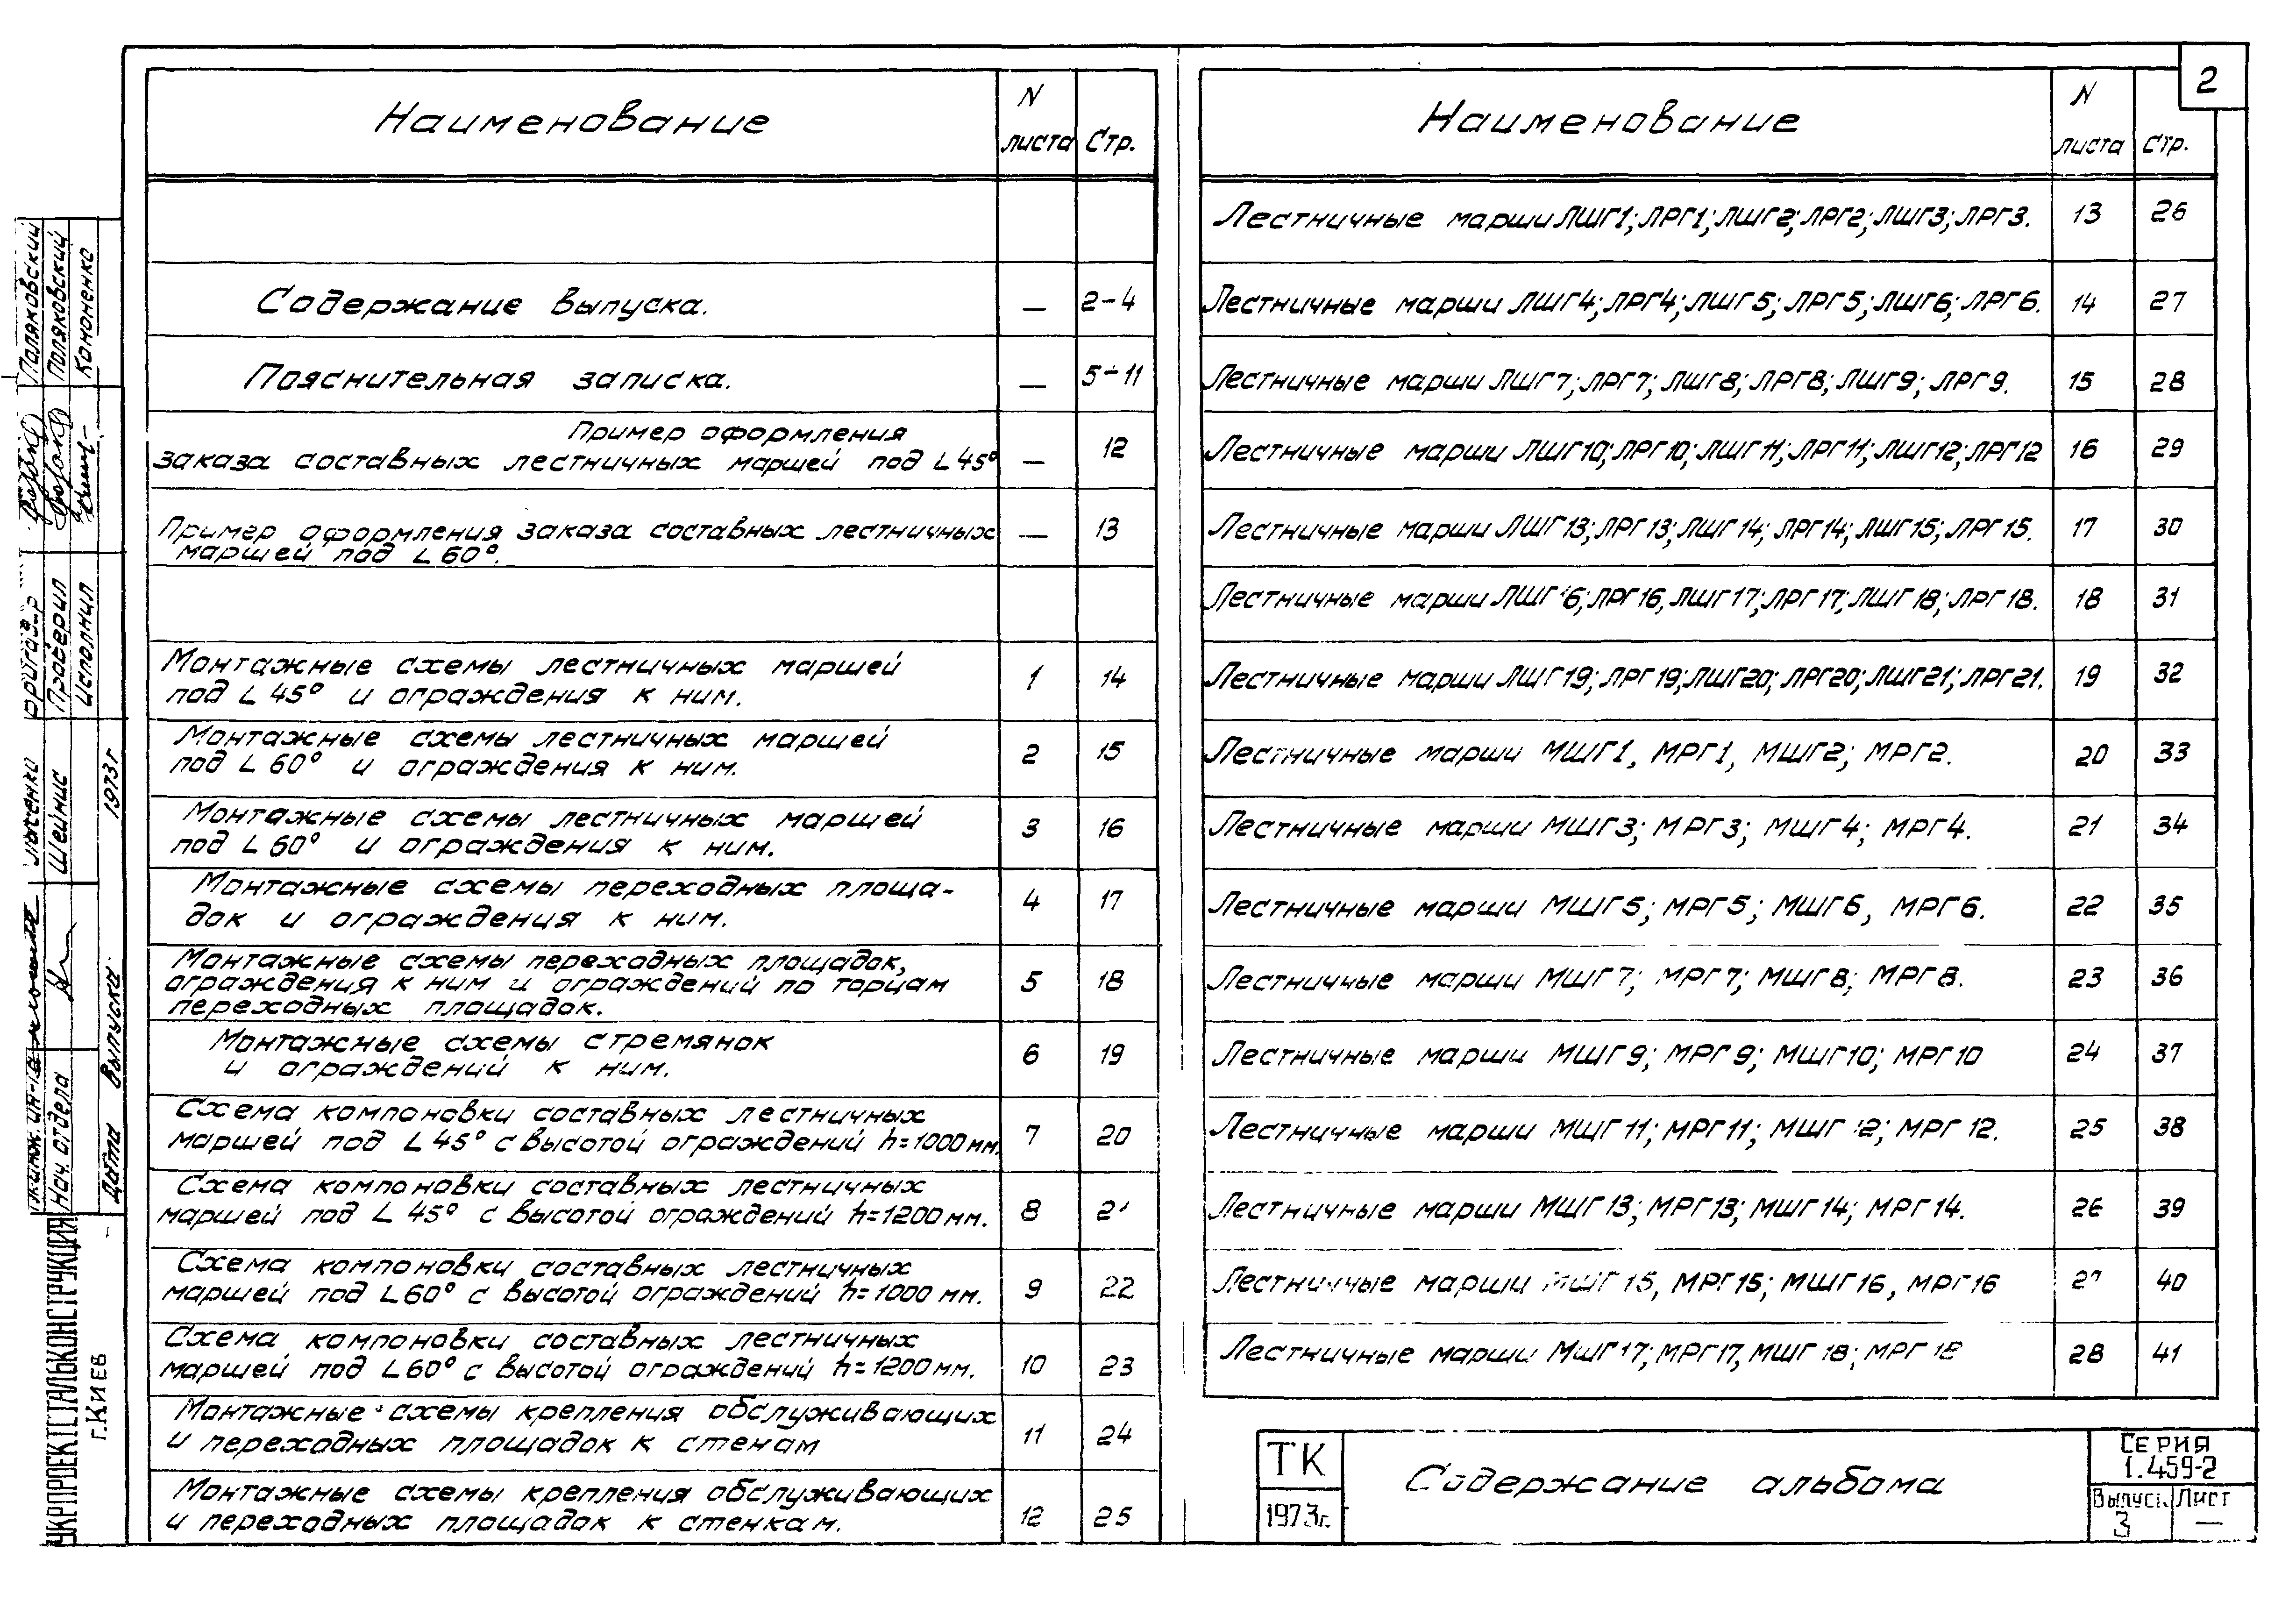 2
Наименование N листа Стр.
Содержание выпуска. — 2-4
Пояснительная записка. — 5÷11
Пример оформления
заказа составных лестничных маршей под L 45° — 12
Пример оформления заказа составных лестничных
маршей под L 60°. — 13
Монтажные схемы лестничных маршей
под L 45° и ограждения к ним. 1 14
Монтажные схемы лестничных маршей
под L 60° и ограждения к ним. 2 15
Монтажные схемы лестничных маршей
под L 60° и ограждения к ним. 3 16
Монтажные схемы переходных площа-
док и ограждения к ним. 4 17
Монтажные схемы переходных площадок,
ограждения к ним и ограждений по торцам
переходных площадок. 5 18
Монтажные схемы стремянок
и ограждений к ним. 6 19
Схема компоновки составных лестничных
маршей под L 45° с высотой ограждений h=1000мм. 7 20
Схема компоновки составных лестничных
маршей под L 45° с высотой ограждений h=1200мм. 8 21
Схема компоновки составных лестничных
маршей под L 60° с высотой ограждений h=1000 мм. 9 22
Схема компоновки составных лестничных
маршей под L 60° с высотой ограждений h=1200мм. 10 23
Монтажные схемы крепления обслуживающих
и переходных площадок к стенам 11 24
Монтажные схемы крепления обслуживающих
и переходных площадок к стенкам. 12 25
Наименование N листа Стр.
Лестничные марши ЛШГ1; ЛРГ1; ЛШГ2; ЛРГ2; ЛШГ3; ЛРГ3. 13 26
Лестничные марши ЛШГ4; ЛРГ4; ЛШГ5; ЛРГ5; ЛШГ6; ЛРГ6. 14 27
Лестничные марши ЛШГ7; ЛРГ7; ЛШГ8; ЛРГ8; ЛШГ9; ЛРГ9. 15 28
Лестничные марши ЛШГ10; ЛРГ10; ЛШГ11; ЛРГ11; ЛШГ12; ЛРГ12 16 29
Лестничные марши ЛШГ13; ЛРГ13; ЛШГ14; ЛРГ14; ЛШГ15; ЛРГ15. 17 30
Лестничные марши ЛШГ16; ЛРГ16, ЛШГ17; ЛРГ17; ЛШГ18; ЛРГ18. 18 31
Лестничные марши ЛШГ19; ЛРГ19; ЛШГ20; ЛРГ20; ЛШГ21; ЛРГ21. 19 32
Лестничные марши МШГ1, МРГ1, МШГ2; МРГ2. 20 33
Лестничные марши МШГ3; МРГ3; МШГ4; МРГ4. 21 34
Лестничные марши МШГ5; МРГ5; МШГ6, МРГ6. 22 35
Лестничные марши МШГ7; МРГ7; МШГ8; МРГ8. 23 36
Лестничные марши МШГ9; МРГ9; МШГ10; МРГ10 24 37
Лестничные марши МШГ11; МРГ11; МШГ12; МРГ12. 25 38
Лестничные марши МШГ13; МРГ13; МШГ14; МРГ14. 26 39
Лестничные марши МШГ15, МРГ15; МШГ16, МРГ16 27 40
Лестничные марши МШГ17; МРГ17, МШГ18; МРГ18 28 41
ТК
1973г.
Содержание альбома
Серия
1.459-2
Выпуск Лист
3 —
Поляковский
Поляковский
Кононенко
Бригадир
Проверил
Исполнил
Лысенко
Шейнис
1973г
Нач. отдела
Дата выпуска
УКРПРОЕКТСТАЛЬКОНСТРУКЦИЯ
г.Киев